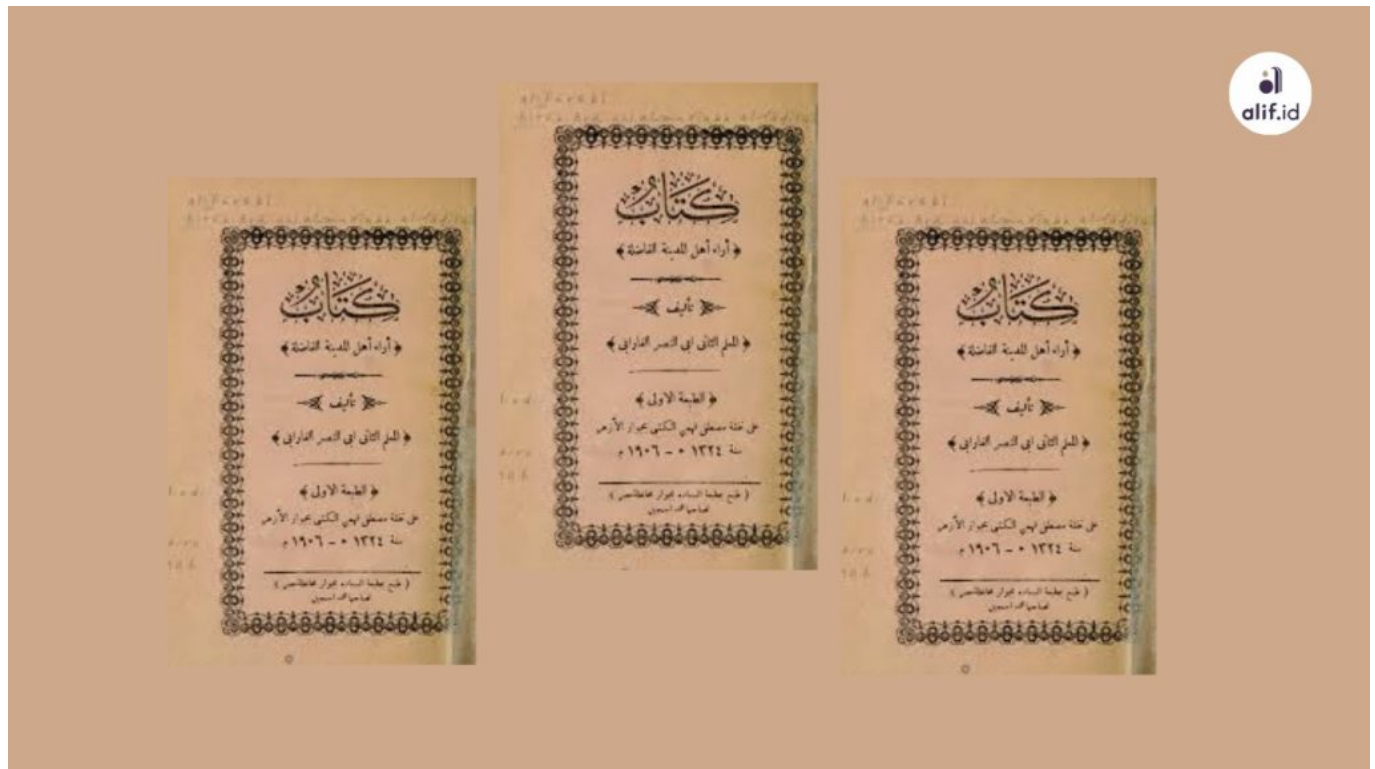 alif.id
كِتَابُ
﴿ أراء أهل المدينة الفاضلة ﴾
تأليف
﴿ المعلم الثاني ابي النصر الفارابي ﴾
﴿ الطبعة الاولى ﴾
على نفقة مصطفى فهمي الكتبي بجوار الأزهر
سنة ١٣٢٤ ه – ١٩٠٦ م
( طبع بمطبعة السعاده بجوار محافظة مصر )
لصاحبها محمد اسمعيل
كِتَابُ
﴿ أراء أهل المدينة الفاضلة ﴾
تأليف
﴿ المعلم الثاني ابي النصر الفارابي ﴾
﴿ الطبعة الاولى ﴾
على نفقة مصطفى فهمي الكتبي بجوار الأزهر
سنة ١٣٢٤ ه – ١٩٠٦ م
( طبع بمطبعة السعاده بجوار محافظة مصر )
لصاحبها محمد اسمعيل
كِتَابُ
﴿ أراء أهل المدينة الفاضلة ﴾
تأليف
﴿ المعلم الثاني ابي النصر الفارابي ﴾
﴿ الطبعة الاولى ﴾
على نفقة مصطفى فهمي الكتبي بجوار الأزهر
سنة ١٣٢٤ ه – ١٩٠٦ م
( طبع بمطبعة السعاده بجوار محافظة مصر )
لصاحبها محمد اسمعيل